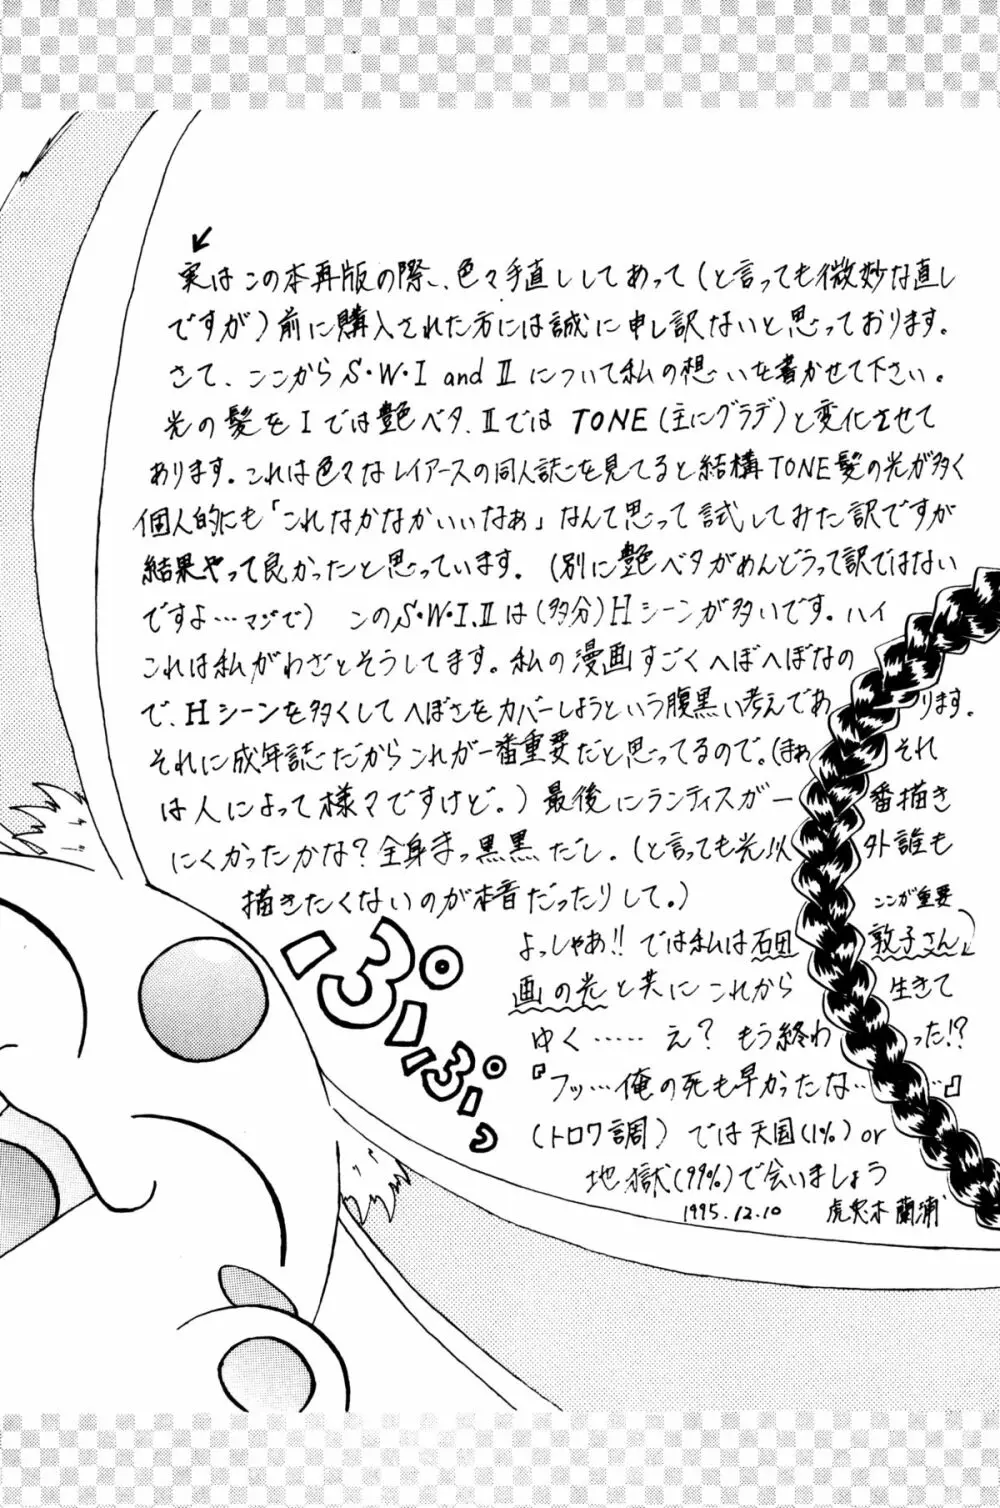 実はこの本再版の際、色々手直ししてあって(と言っても微妙な直し
ですが)前に購入された方には誠に申し訳ないと思っております。
さて、ここからS・W・I and IIについて私の想いを書かせて下さい。
光の髪をIでは艶ベタ、IIではTONE(主にグラデ)と変化させて
あります。これは色々なレイアースの同人誌を見てると結構TONE髪の光が多く
個人的にも「これなかなかいいなぁ」なんて思って試してみた訳ですが
結果やって良かったと思っています。(別に艶ベタがめんどうって訳ではない
ですよ…マジで) このS・W・I、IIは(多分)Hシーンが多いです。ハイ
これは私がわざとそうしてます。私の漫画すごくへぼへぼなの
で、Hシーンを多くしてへぼさをカバーしようという腹黒い考えであります。
それに成年誌だからこれが一番重要だと思ってるので。(まぁそれ
は人によって様々ですけど。)最後にランティスが一番描き
にくかったかな?全身まっ黒黒だし。(と言っても光以外誰も
描きたくないのが本音だったりして。)
ぷぷぷ。
ここが重要
よっしゃあ!!では私は石田敦子さん
画の光と共にこれから生きて
ゆく……え?もう終わった!?
『フッ…俺の死も早かったな……』
(トロワ調)では天国(1%)or
地獄(99%)で会いましょう
1995.12.10 虎兎木 蘭浦